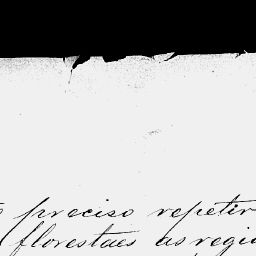 preciso repetir
florestaes as regiõ